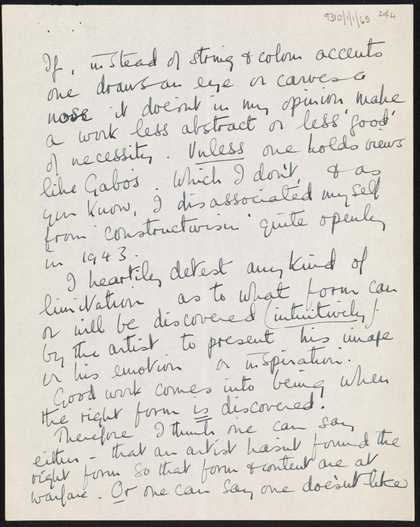 9310/1/1/65 264
If, instead of string & colour accents
one draws an eye or carves a
nose it doesn't in my opinion make
a work less abstract or less 'good'
of necessity. Unless one holds views
like Gabo's. Which I don't, & as
you know, I disassociated myself
from 'constructivism' quite openly
in 1943.
I heartily detest any kind of
limitation as to what form can
or will be discovered (intuitively)
by the artist to present his image
or his emotion or inspiration.
Good work comes into being when
the right form is discovered.
Therefore I think one can say
either - that an artist hasn't found the
right form so that form & content are at
warfare. Or one can say one doesn't like